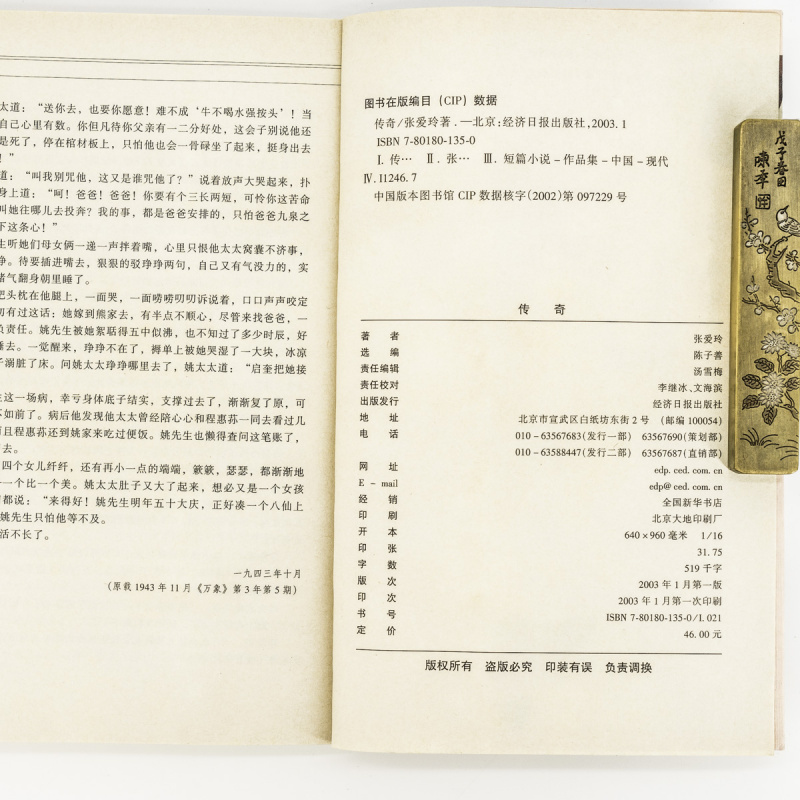 太道：“送你去，也要你愿意！难不成‘牛不喝水强按头’！当
自己心里有数。你但凡待你父亲有一二分好处，这会子别说他还
是死了，停在棺材板上，只怕他也会一骨碌坐了起来，挺身出去
！”
道：“叫我别咒他，这又是谁咒他了？”说着放声大哭起来，扑
身上道：“呵！爸爸！爸爸！你要有个三长两短，可怜你这苦命
叫她往哪儿去投奔？我的事，都是爸爸安排的，只怕爸爸九泉之
下这条心！”
生听她们母女俩一递一声拌着嘴，心里只恨他太太窝囊不济事，
琤。待要插进嘴去，狠狠的驳琤琤两句，自己又有气没力的，实
赌气翻身朝里睡了。
把头枕在他腿上，一面哭，一面唠唠叨叨诉说着，口口声声咬定
初有过这话：她嫁到熊家去，有半点不顺心，尽管来找爸爸，一
负责任。姚先生被她絮聒得五中似沸，也不知过了多少时辰，好
睡去。一觉醒来，琤琤不在了，褥单上被她哭湿了一大块，冰凉
子溺脏了床。问姚太太琤琤哪里去了，姚太太道：“启奎把她接
生这一场病，幸亏身体底子结实，支撑过去了，渐渐复了原，可
不如前了。病后他发现他太太曾经陪心心和程惠荪一同去看过几
而且程惠荪还到姚家来吃过便饭。姚先生也懒得查问这笔账了，
去。
四个女儿纤纤，还有再小一点的端端，簌簌，瑟瑟，都渐渐地
一个比一个美。姚太太肚子又大了起来，想必又是一个女孩
都说：“来得好！姚先生明年五十大庆，正好凑一个八仙上
姚先生只怕他等不及。
活不长了。
一九四三年十月
（原载1943年11月《万象》第3年第5期）
图书在版编目（CIP）数据
传奇/张爱玲著.—北京：经济日报出版社，2003.1
ISBN 7-80180-135-0
Ⅰ.传… Ⅱ.张… Ⅲ.短篇小说-作品集-中国-现代
Ⅳ.I1246.7
中国版本图书馆CIP数据核字（2002）第097229号
传 奇
著 者 张爱玲
选 编 陈子善
责任编辑 汤雪梅
责任校对 李继冰、文海滨
出版发行 经济日报出版社
地 址 北京市宣武区白纸坊东街2号 （邮编100054）
电 话 010－63567683（发行一部） 63567690（策划部）
010－63588447（发行二部） 63567687（直销部）
网 址 edp. ced. com. cn
E－mail edp@ ced. com. cn
经 销 全国新华书店
印 刷 北京大地印刷厂
开 本 640×960毫米 1/16
印 张 31.75
字 数 519千字
版 次 2003年1月第一版
印 次 2003年1月第一次印刷
书 号 ISBN 7-80180-135-0/I.021
定 价 46.00元
版权所有 盗版必究 印装有误 负责调换
戊子春日